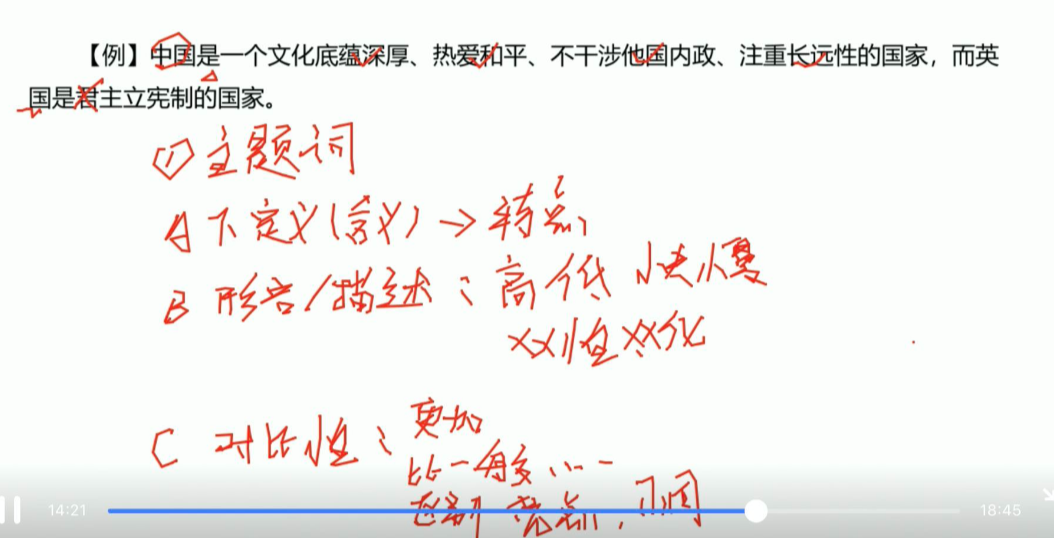 【例】中国是一个文化底蕴深厚、热爱和平、不干涉他国内政、注重长远性的国家，而英
国是君主立宪制的国家。
① 主题词
A 下定义(含义) → 特点
B 形容/描述： 高低 快慢
××性 ××化
C 对比性： 更加
比一般多
区别 优点，不同
14:21
18:45